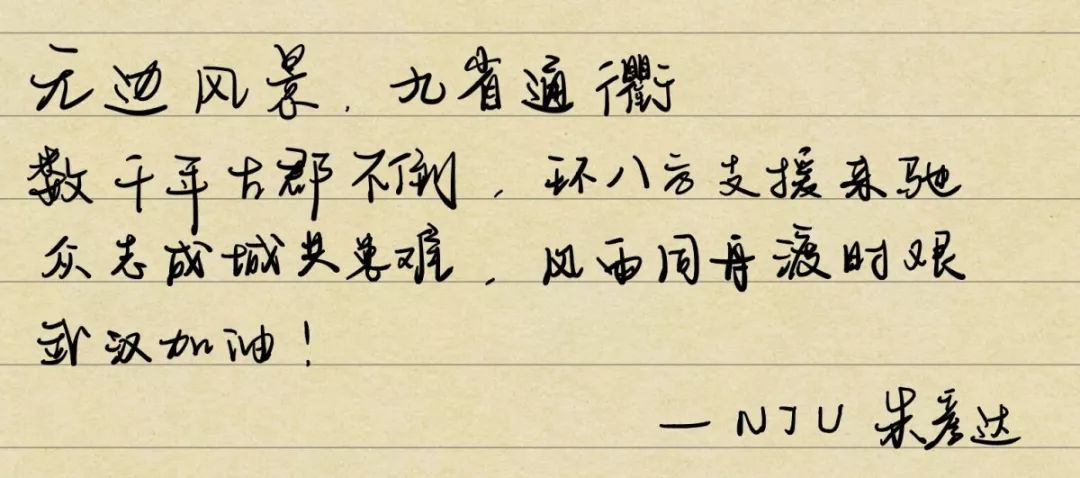 无边风景，九省通衢
数千年古郡不倒，环八方支援来驰
众志成城共患难，风雨同舟渡时艰
武汉加油！
— NJU 朱彦达